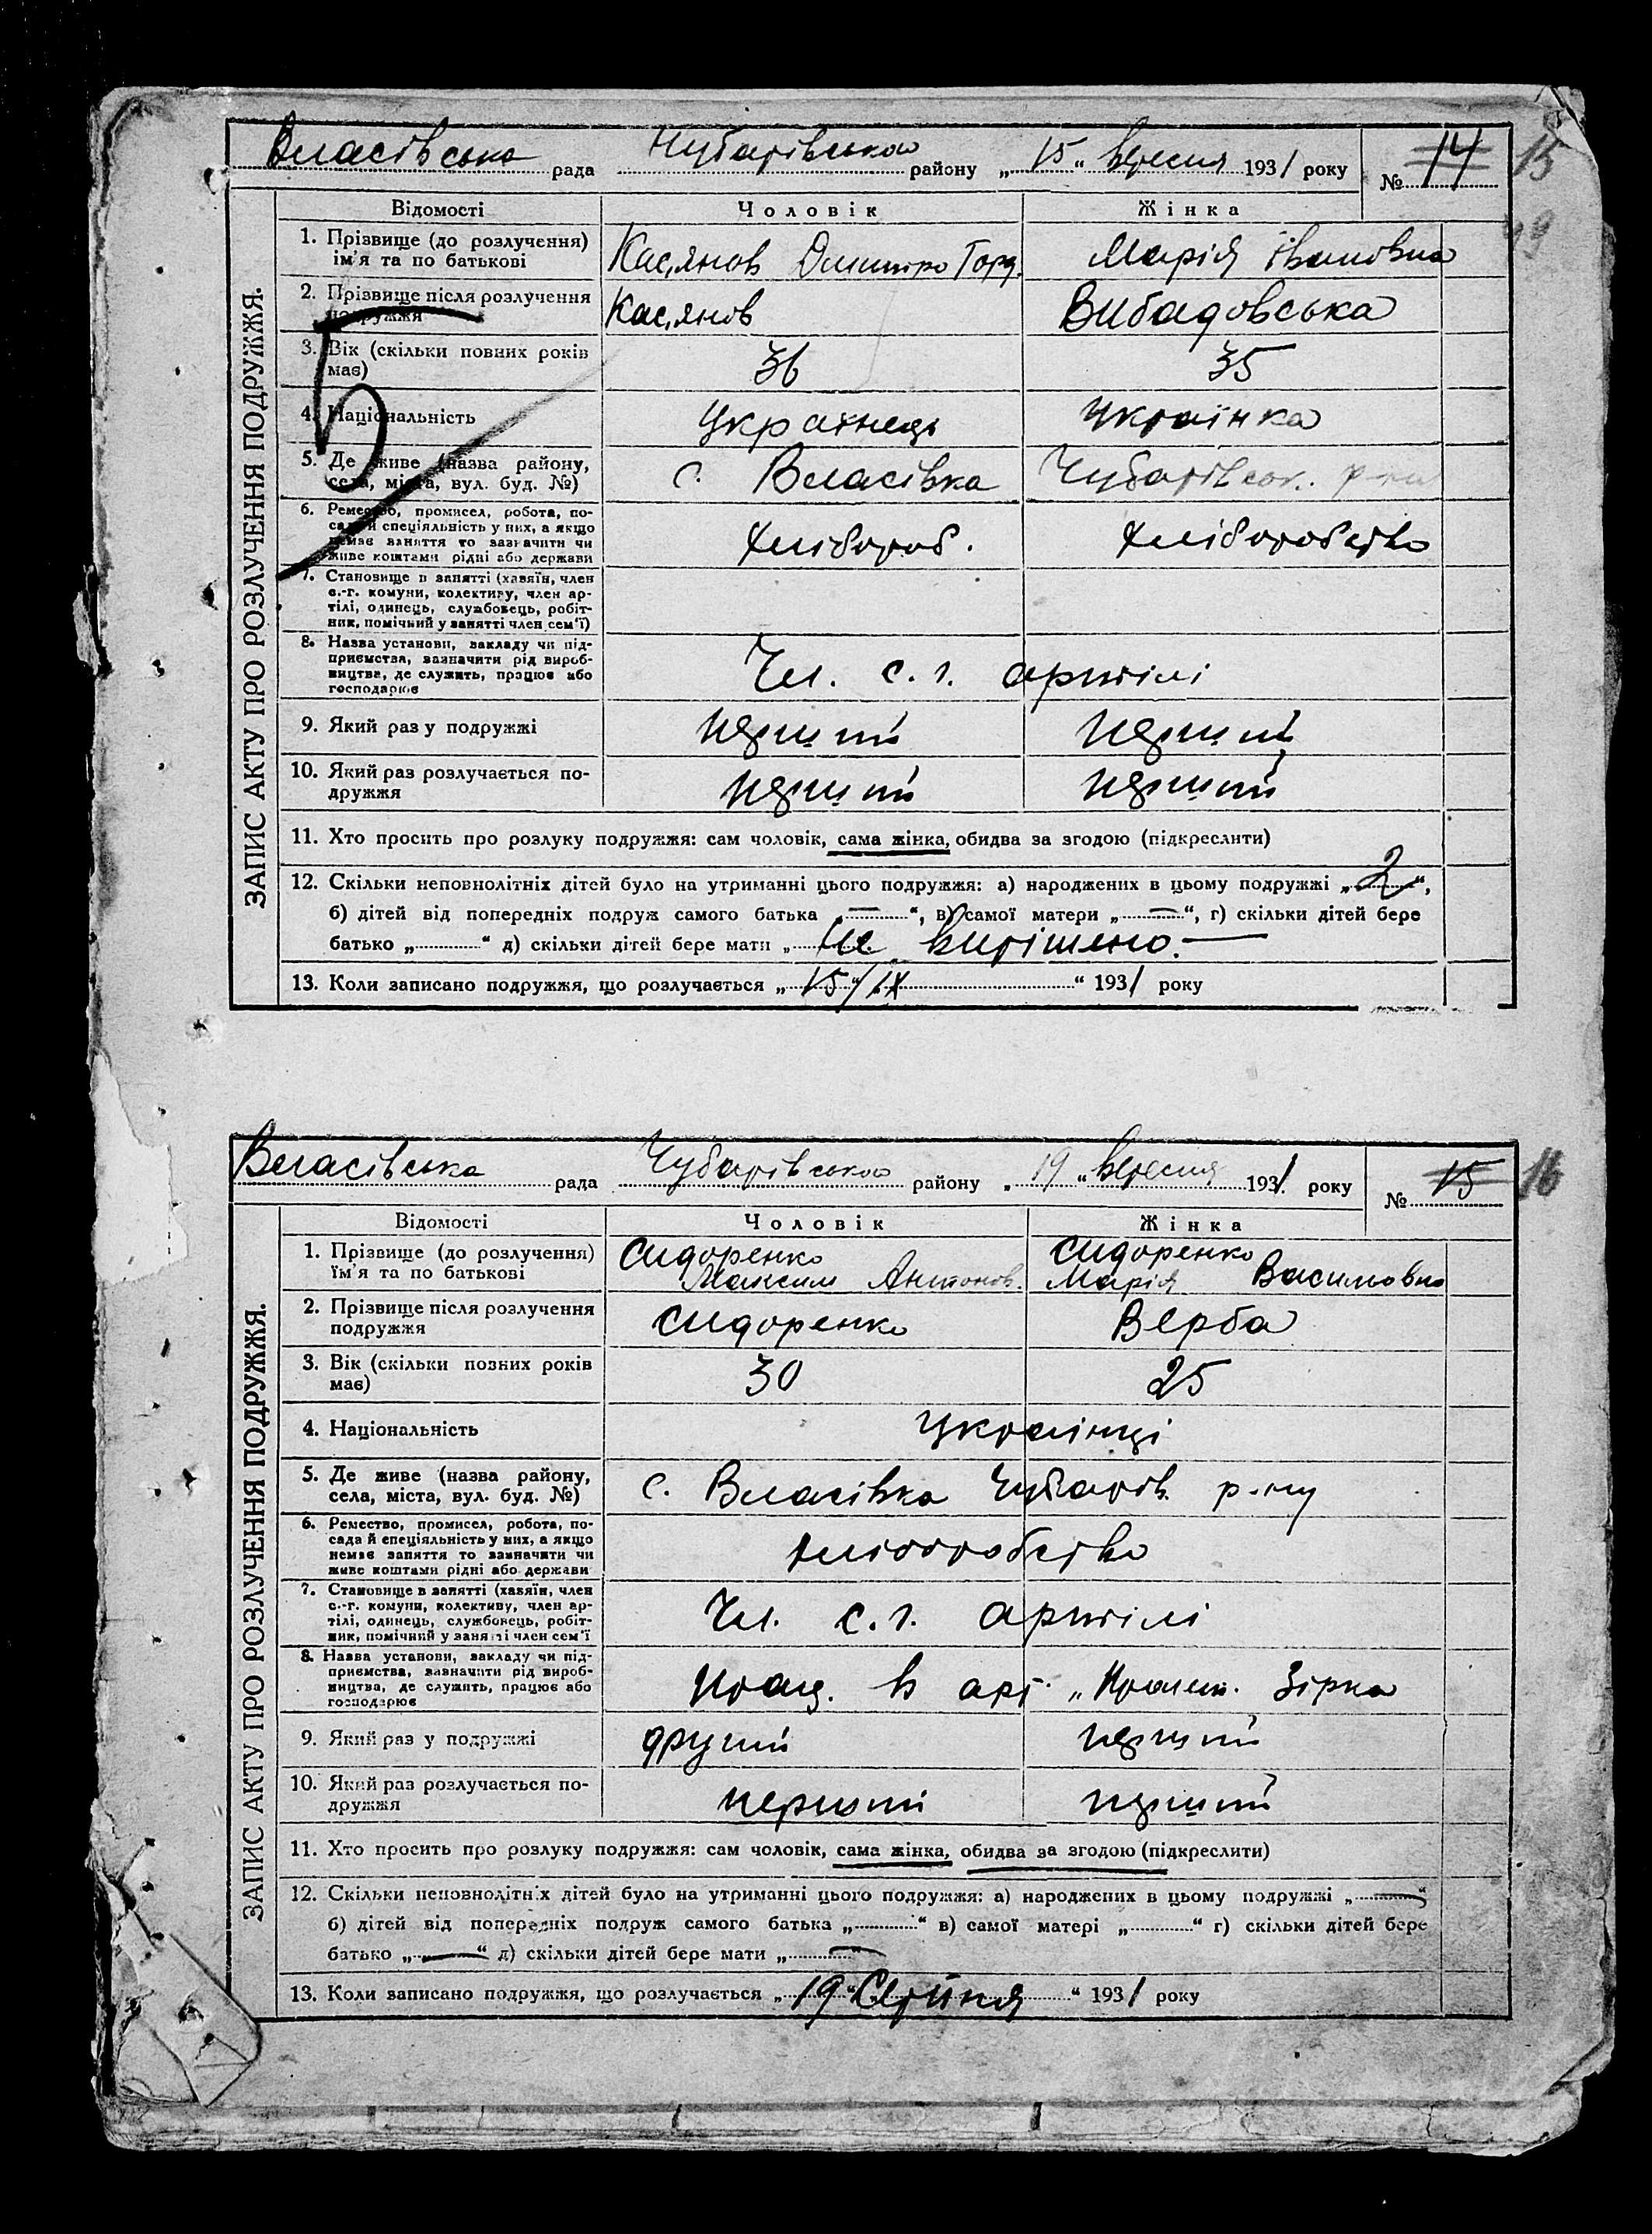 Власівська рада Чубарівського району „15“ вересня 1931 року № 14 15
Відомості Чоловік Жінка
ЗАПИС АКТУ ПРО РОЗЛУЧЕННЯ ПОДРУЖЖЯ.
1. Прізвище (до розлучення) Касянов Дмитро Горд. Марія Івановна
ім'я та по батькові
2. Прізвище після розлучення Касянов
подружжя
3. Вік (скільки повних років 36 35
має)
4. Національність Українець Українка
5. Де живе (назва району, с. Власівка Чубарівськ. р-на
села, міста, вул. буд. №)
6. Ремество, промисел, робота, по-
сада й спеціяльність у них, а якщо Хлібороб. Хліборобство
немає заняття то зазначити чи
живе коштами рідні або держави
7. Становище в занятті (хазяїн, член
с.-г. комуни, колективу, член ар-
тілі, одинець, службовець, робіт-
ник, помічний у занятті член сем'ї)
8. Назва установи, закладу чи під-
приємства, зазначити рід вироб- Чл. с. г. артілі
ництва, де служить, працює або
господарює
9. Який раз у подружжі перший перший
10. Який раз розлучається по- перший перший
дружжя
11. Хто просить про розлуку подружжя: сам чоловік, сама жінка, обидва за згодою (підкреслити)
12. Скільки неповнолітніх дітей було на утриманні цього подружжя: а) народжених в цьому подружжі „2“,
б) дітей від попередніх подруж самого батька „—“, в) самої матери „—“, г) скільки дітей бере
батько „ “ д) скільки дітей бере мати „ Не вирішено. —
13. Коли записано подружжя, що розлучається „15/IX “ 1931 року
Власівська рада Чубарівського району „19“ вересня 1931. року № 15 16
Відомості Чоловік Жінка
ЗАПИС АКТУ ПРО РОЗЛУЧЕННЯ ПОДРУЖЖЯ.
1. Прізвище (до розлучення) Сидоренко Сидоренко
їм'я та по батькові Максим Антонов. Марія Василовна
2. Прізвище після розлучення Сидоренко Верба
подружжя
3. Вік (скільки позних років 30 25
має)
4. Національність Українці
5. Де живе (назва району, с. Власівка Чубарів. р-ну
села, міста, вул. буд. №)
6. Ремество, промисел, робота, по-
сада й спеціяльність у них, а якщо Хліборобство
немає заняття то зазначити чи
живе коштами рідні або держави
7. Становище в занятті (хазяїн, член
с.-г. комуни, колективу, член ар- Чл. с. г. артілі
тілі, одинець, службовець, робіт-
ник, помічний у занятті член сем'ї
8. Назва установи, закладу чи під-
приємства, зазначити рід вироб- Прац. в арт. „ Зірка
ництва, де служить, працює або
господарює
9. Який раз у подружжі другий перший
10. Який раз розлучається по- перший перший
дружжя
11. Хто просить про розлуку подружжя: сам чоловік, сама жінка, обидва за згодою (підкреслити)
12. Скільки неповнолітніх дітей було на утриманні цього подружжя: а) народжених в цьому подружжі „—“
б) дітей від попередніх подруж самого батька „ “ в) самої матері „ “ г) скільки дітей бере
батько „—“ д) скільки дітей бере мати „—“
13. Коли записано подружжя, що розлучається „19“ Серпня “ 1931 року